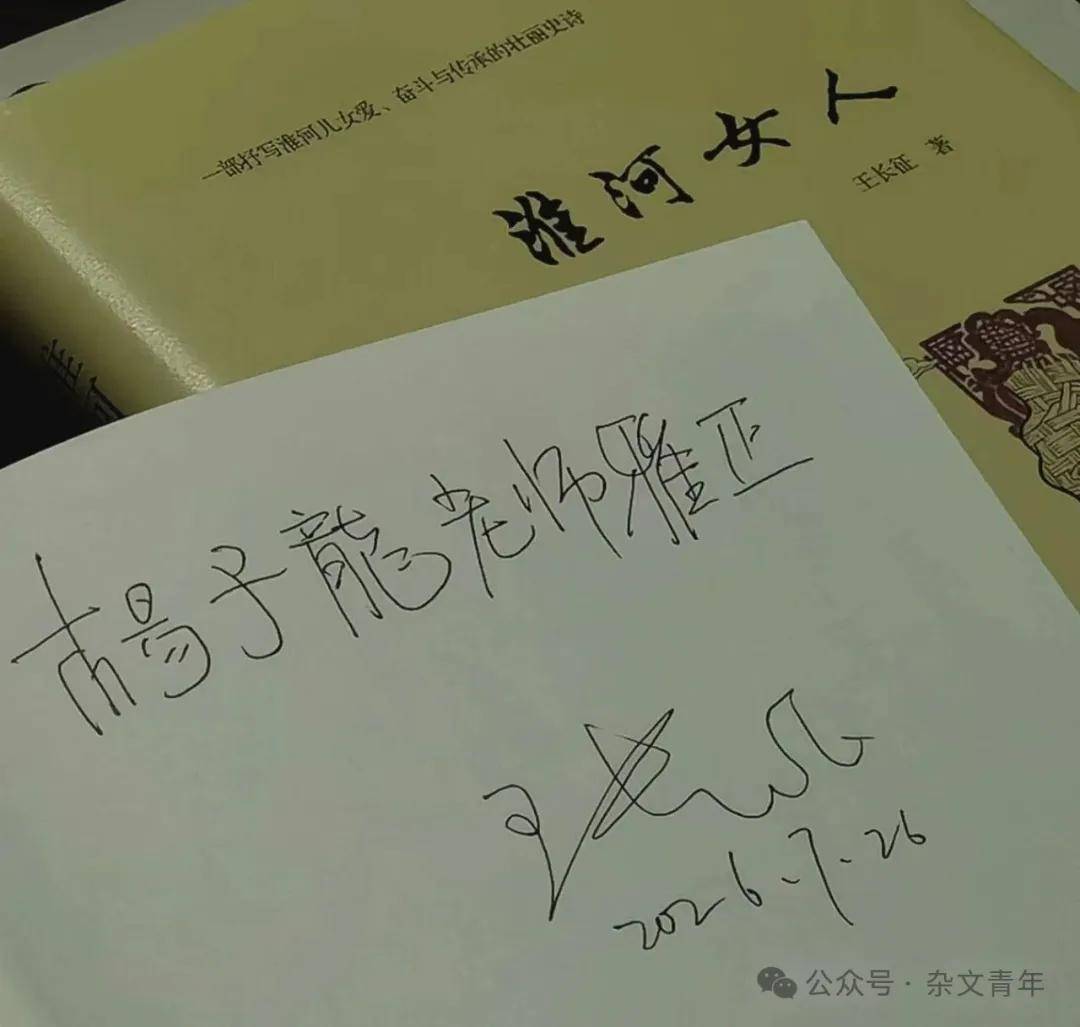 一部抒写淮河儿女爱、奋斗与传承的壮丽史诗
淮河女人
王长征 著
杨子龍老师雅正
王长征
2026.7.26
公众号·杂文青年